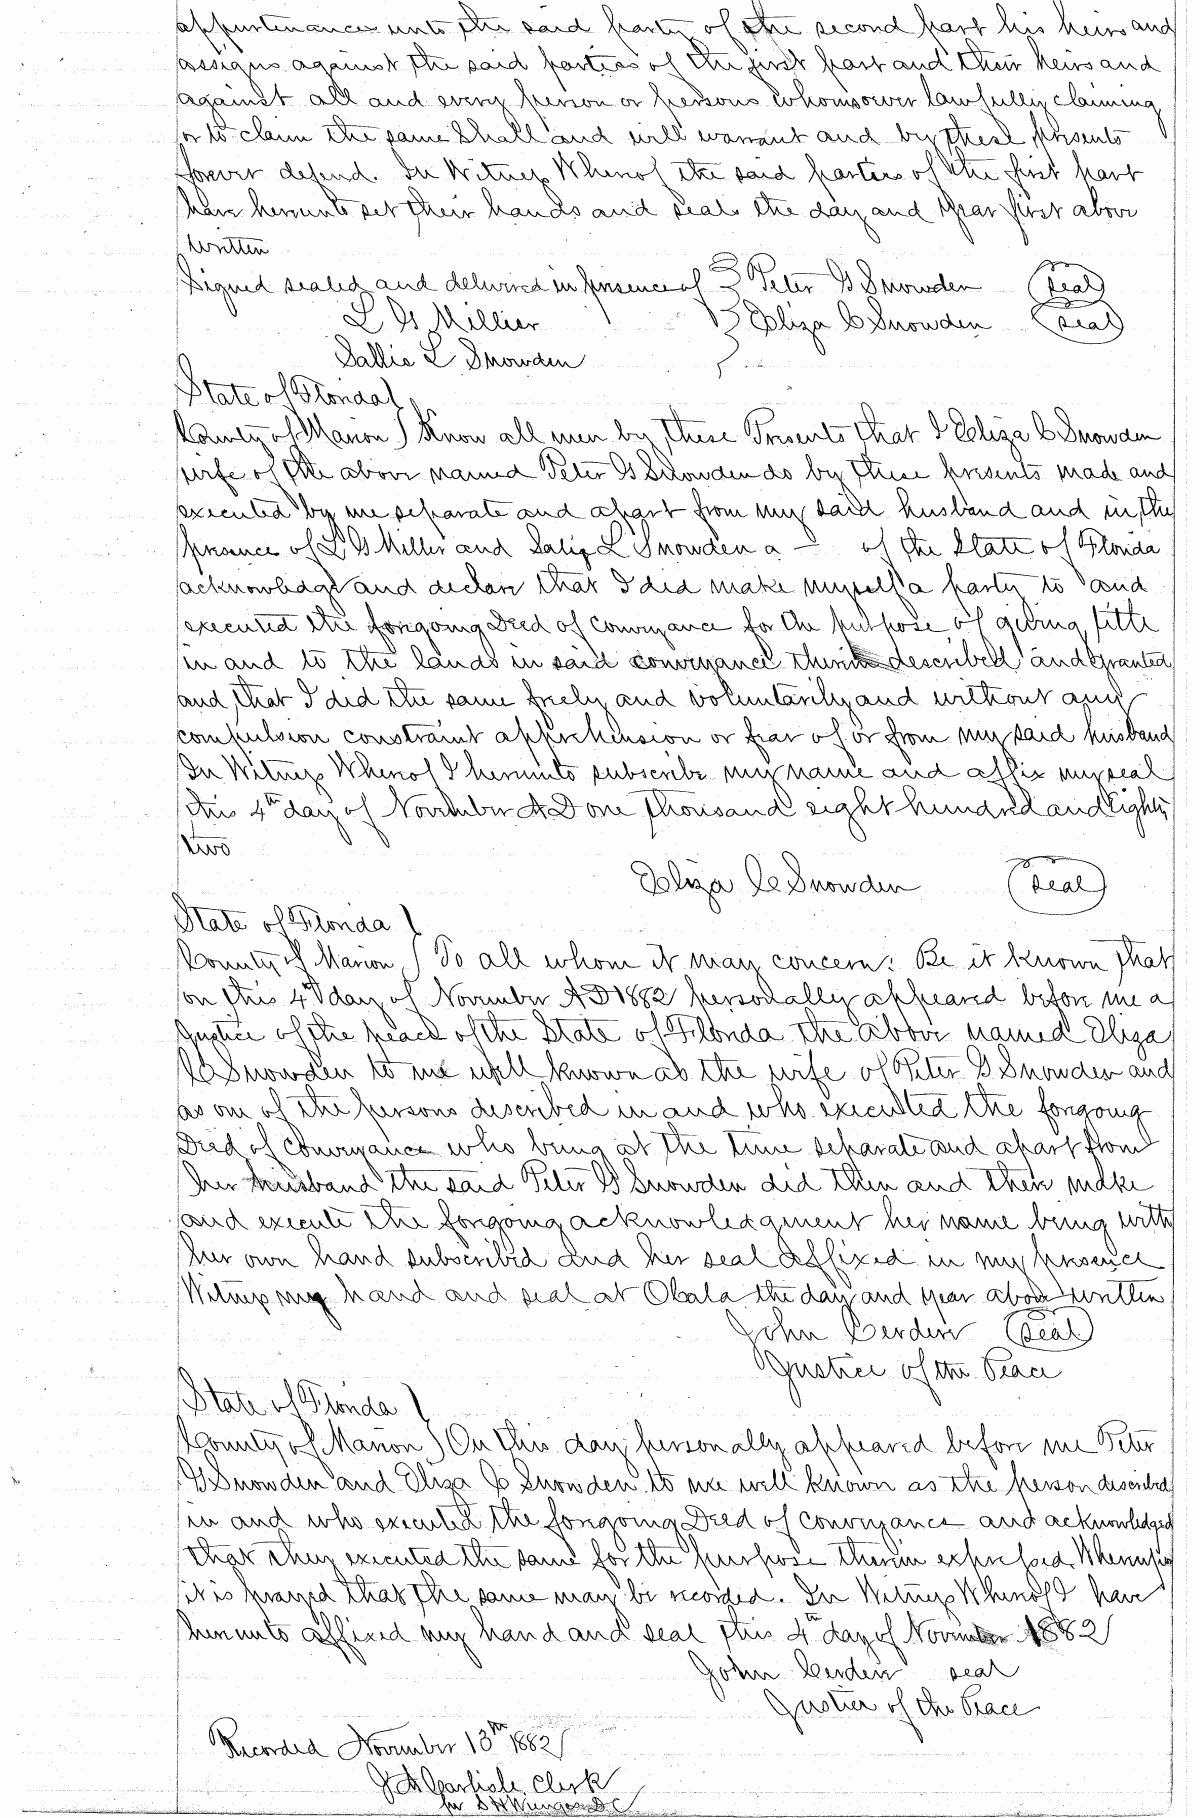 appurtenances unto the said party of the second part his heirs and
assigns against the said parties of the first part and their heirs and
against all and every person or persons whomsoever lawfully claiming
or to claim the same Shall and will warrant and by these presents
forever defend. In Witness Whereof the said parties of the first part
have hereunto set their hands and seals the day and year first above
written
Signed sealed and delivered in presence of } Peter G Snowden (seal)
L G Millier } Eliza C Snowden (seal)
Sallie L Snowden }
State of Florida }
County of Marion } Know all men by these Presents that I Eliza C Snowden
wife of the above named Peter G Snowden do by these presents made and
executed by me separate and apart from my said husband and in the
presence of L G Miller and Sallie L Snowden a — of the State of Florida
acknowledge and declare that I did make myself a party to and
executed the foregoing Deed of Conveyance for the purpose of giving title
in and to the lands in said conveyance therein described and granted
and that I did the same freely and voluntarily and without any
compulsion constraint apprehension or fear of or from my said husband
In Witness Whereof I hereunto subscribe my name and affix my seal
this 4th day of November A D one thousand eight hundred and Eighty
two
Eliza C Snowden (seal)
State of Florida }
County of Marion } To all whom it may concern: Be it known that
on this 4th day of November A D 1882 personally appeared before me a
Justice of the peace of the State of Florida the above named Eliza
C Snowden to me well known as the wife of Peter G Snowden and
as one of the persons described in and who executed the foregoing
Deed of Conveyance who being at the time separate and apart from
her husband the said Peter G Snowden did then and there make
and execute the foregoing acknowledgment her name being with
her own hand subscribed and her seal affixed in my presence
Witness my hand and seal at Ocala the day and year above written
John (seal)
Justice of the Peace
State of Florida }
County of Marion } On this day personally appeared before me Peter
G Snowden and Eliza C Snowden to me well known as the person described
in and who executed the foregoing Deed of Conveyance and acknowledged
that they executed the same for the purpose therein expressed Whereupon
it is prayed that the same may be recorded. In Witness Whereof I have
hereunto affixed my hand and seal this 4th day of November 1882
John seal
Justice of the Peace
Recorded November 13th 1882
Carlisle Clerk